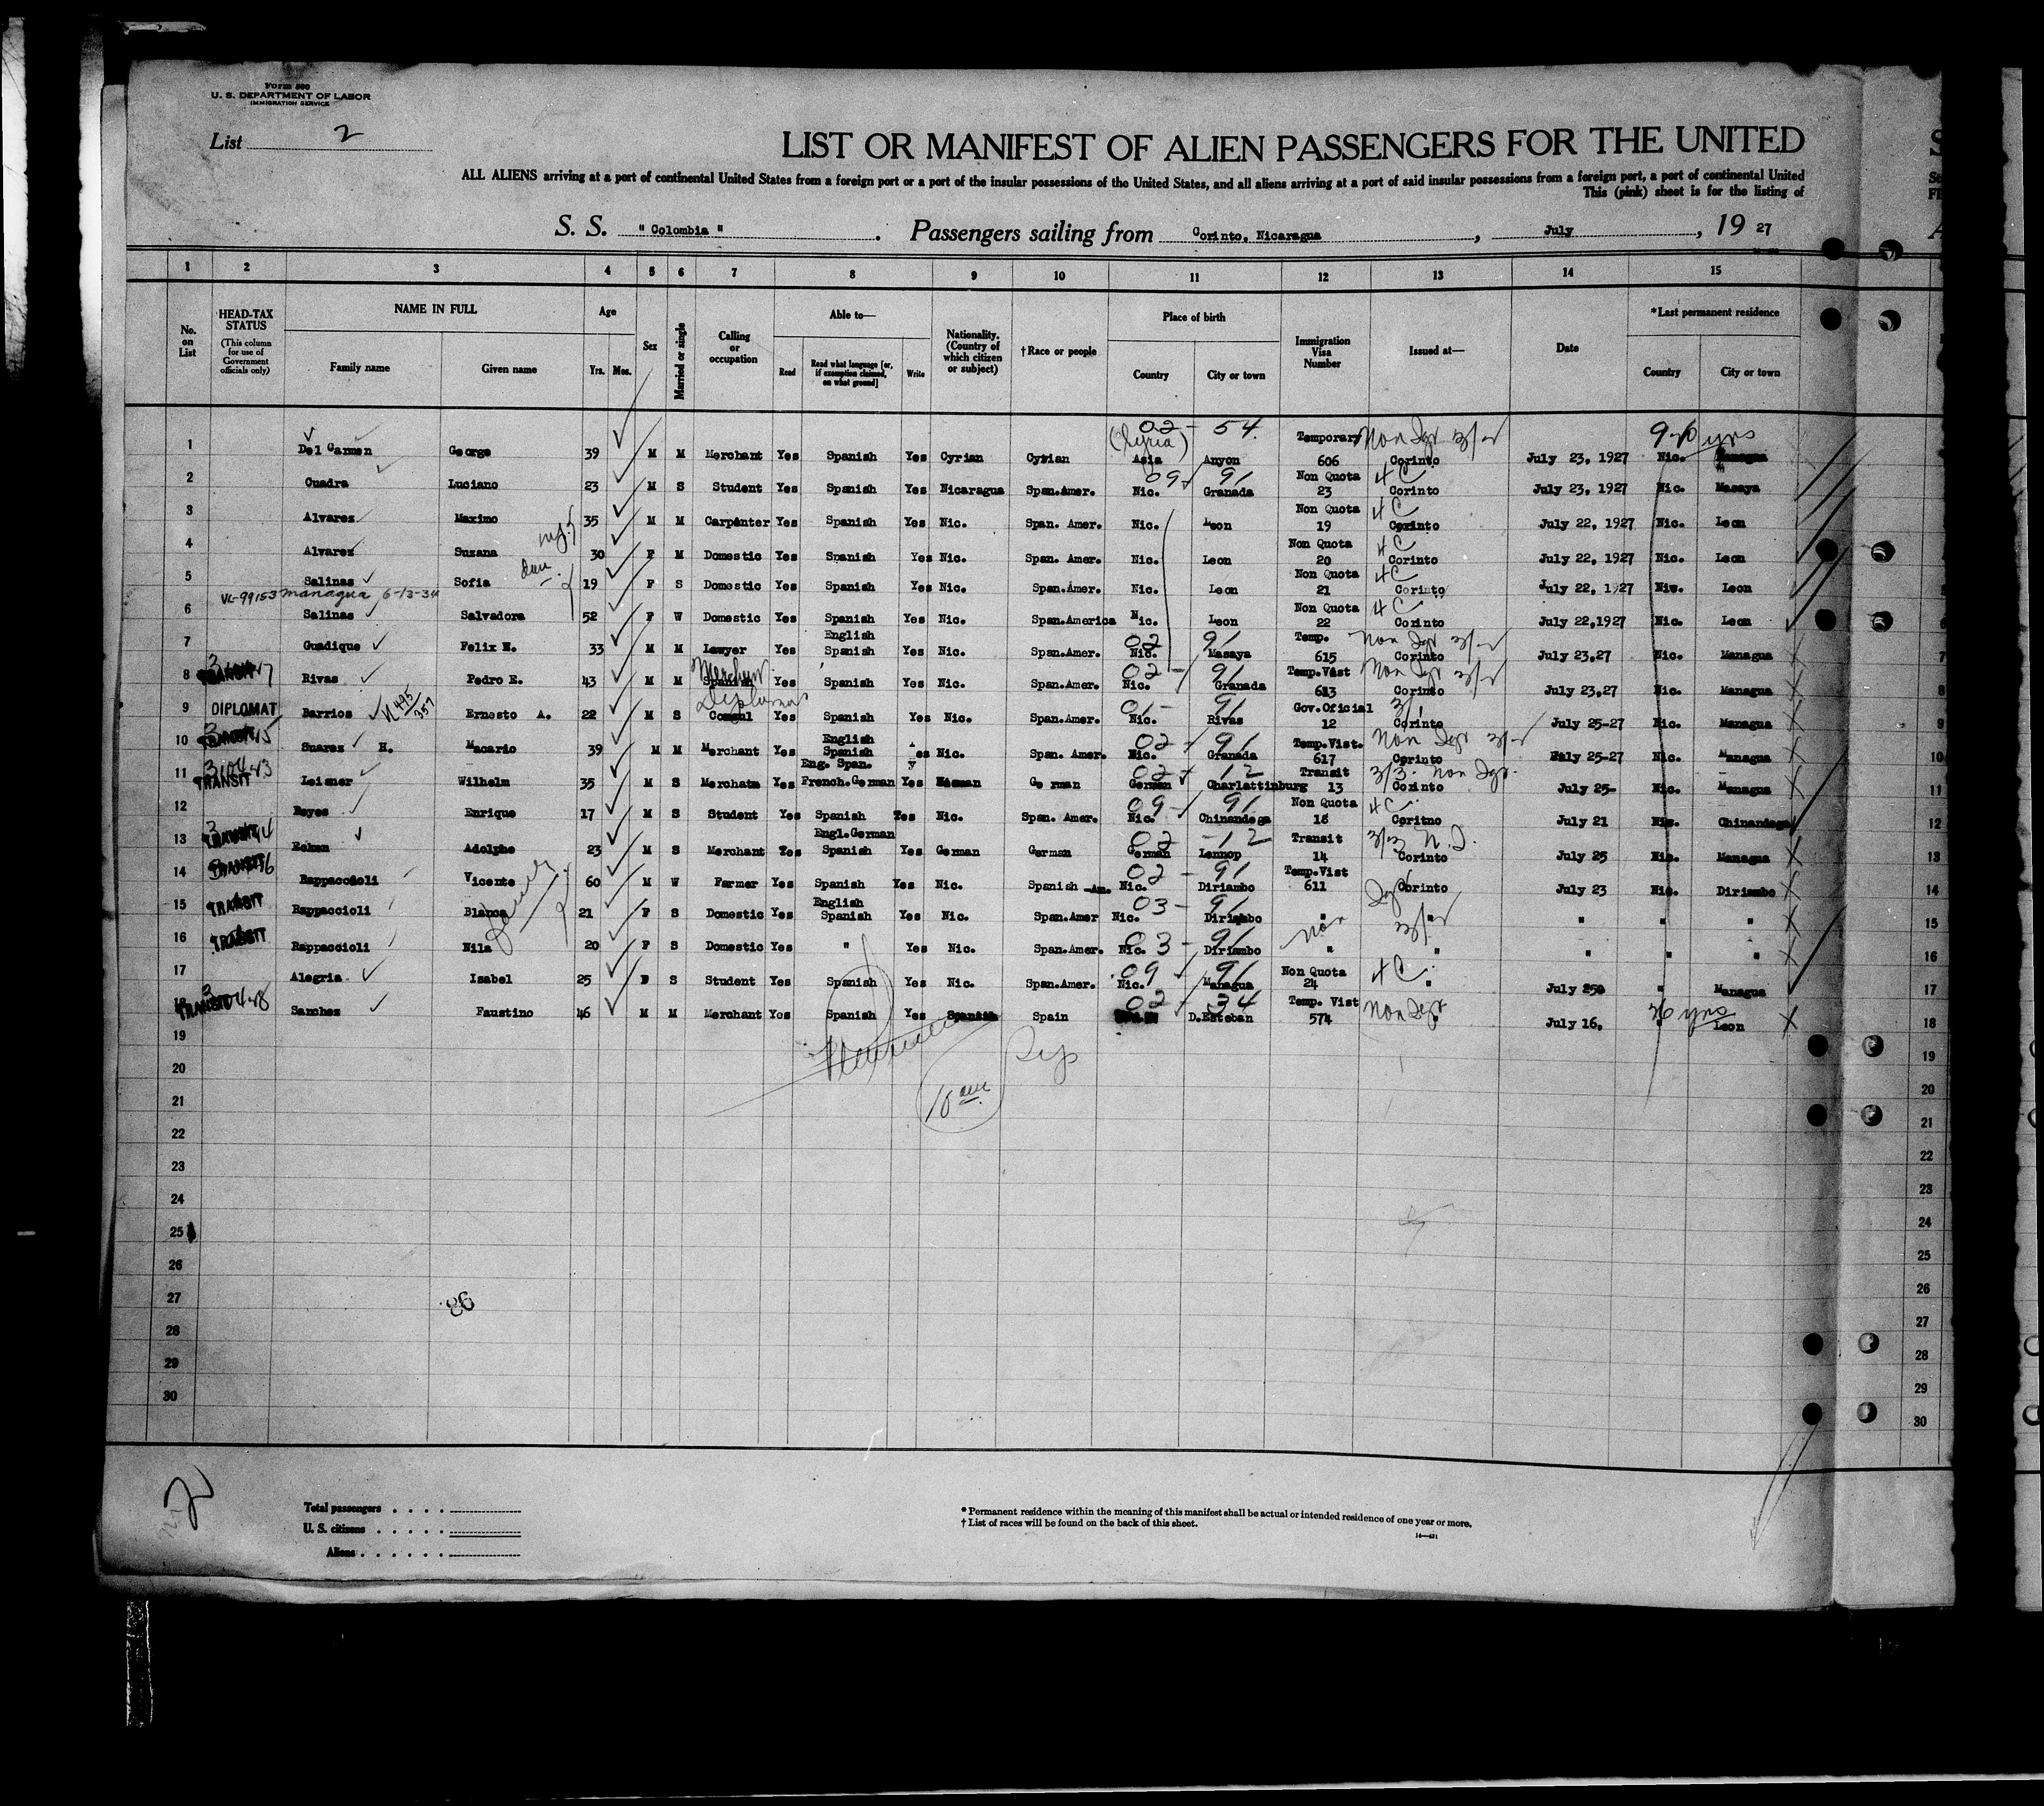 Form 500
U. S. DEPARTMENT OF LABOR
IMMIGRATION SERVICE
List 2
LIST OR MANIFEST OF ALIEN PASSENGERS FOR THE UNITED
ALL ALIENS arriving at a port of continental United States from a foreign port or a port of the insular possessions of the United States, and all aliens arriving at a port of said insular possessions from a foreign port, a port of continental United
This (pink) sheet is for the listing of
S. S. "Colombia". Passengers sailing from Corinto, Nicaragua, July, 19 27
1 2 3 4 5 6 7 8 9 10 11 12 13 14 15
No. on List
HEAD-TAX STATUS (This column for use of Government officials only)
NAME IN FULL Family name Given name
Age Yrs. Mos.
Sex
Married or single
Calling or occupation
Able to— Read Read what language [or, if exemption claimed, on what ground] Write
Nationality. (Country of which citizen or subject)
† Race or people
Place of birth Country City or town
Immigration Visa Number
Issued at—
Date
*Last permanent residence Country City or town
02 - 54. (Syria) Temporary 9 yrs
1 Del Carmen George 39 M M Merchant Yes Spanish Yes Cyrian Cyrian Asia Anyon 606 Corinto July 23, 1927 Nic. Managua
09 91 Non Quota 4 C
2 Cuadra Luciano 23 M S Student Yes Spanish Yes Nicaragua Span.Amer. Nic. Granada 23 Corinto July 23, 1927 Nic. Masaya
Non Quota 4 C
3 Alvarez Maximo 35 M M Carpenter Yes Spanish Yes Nic. Span. Amer. Nic. Leon 19 Corinto July 22, 1927 Nic. Leon
Non Quota 4 C
4 Alvarez Suzana 30 F M Domestic Yes Spanish Yes Nic. Span. Amer. Nic. Leon 20 Corinto July 22, 1927 Nic. Leon
Non Quota 4 C
5 Salinas Sofia 19 F S Domestic Yes Spanish Yes Nic. Span.Amer. Nic. Leon 21 Corinto July 22, 1927 Nic. Leon
VL-99153 Managua 6-13-34 Non Quota 4 C
6 Salinas Salvadora 52 F W Domestic Yes Spanish Yes Nic. Span.America Nic. Leon 22 Corinto July 22,1927 Nic. Leon
English 02 91 Temp.
7 Guadique Felix N. 33 M M Lawyer Yes Spanish Yes Nic. Span.Amer. Nic. Masaya 615 Corinto July 23,27 Nic. Managua
TRANSIT 02 - 91 Temp.Vist
8 Rivas Pedro E. 43 M M Spanish Yes Spanish Yes Nic. Span.Amer. Nic. Granada 613 Corinto July 23,27 Nic. Managua
Diplomat 01 - 91 Gov.Oficial 3/1
9 DIPLOMAT Barrios N 495 357 Ernesto A. 22 M S Consul Yes Spanish Yes Nic. Span.Amer. Nic. Rivas 12 Corinto July 25-27 Nic. Managua
TRANSIT English 02 - 91 Temp.Vist.
10 Suarez H. Macario 39 M M Merchant Yes Spanish Yes Nic. Span. Amer. Nic. Granada 617 Corinto July 25-27 Nic. Managua
Eng. Span. 02 - 12 Transit
11 TRANSIT Leisner Wilhelm 35 M S Merchatn Yes French.German Yes German German Charlattinburg 13 Corinto July 25- Nic. Managua
09 - 91 Non Quota 4 C.
12 Reyes Enrique 17 M S Student Yes Spanish Yes Nic. Span. Amer. Nic. Chinandega 18 Coritno July 21 Nic. Chinandega
TRANSIT Engl.German 02 - 12 Transit
13 Adolphe 23 M S Merchant Yes Spanish Yes German German German Lennop 14 Corinto July 25 Nic. Managua
TRANSIT 02 - 91 Temp.Vist
14 Rappaccioli Vicente 60 M W Farmer Yes Spanish Yes Nic. Spanish Am. Nic. Diriambo 611 Corinto July 23 Nic. Diriambo
TRANSIT English 03 - 91
15 Rappaccioli Blanca 21 F S Domestic Yes Spanish Yes Nic. Span.Amer Nic. Diriambo " " " " "
TRANSIT 03 - 91
16 Rappaccioli Nila 20 F S Domestic Yes " Yes Nic. Span.Amer. Nic. Diriambo " " " " "
09 91 Non Quota 4 C.
17 Alegria Isabel 25 F S Student Yes Spanish Yes Nic. Span.Amer. Nic. Managua 24 " July 25 " Managua
TRANSIT 02 - 34 Temp. Vist 26 yrs
18 Sanchez Faustino 46 M M Merchant Yes Spanish Yes Spanish Spain D.Esteban 574 " July 16. " Leon
19
20
10 am
21
22
23
24
25
26
27
86
28
29
30
Total passengers
U. S. citizens
Aliens
* Permanent residence within the meaning of this manifest shall be actual or intended residence of one year or more.
† List of races will be found on the back of this sheet.